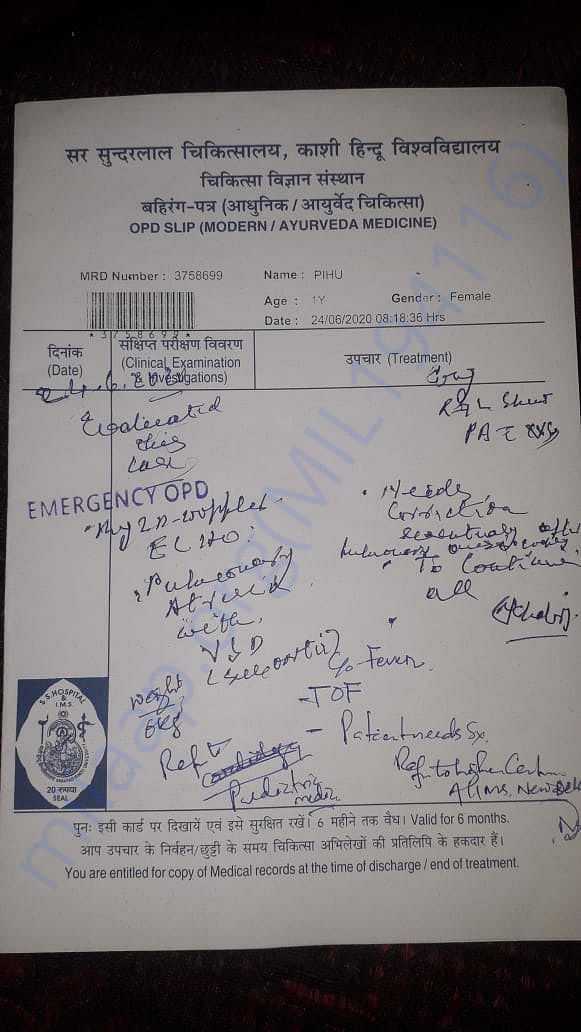 सर सुन्दरलाल चिकित्सालय, काशी हिन्दू विश्वविद्यालय
चिकित्सा विज्ञान संस्थान
बहिरंग-पत्र (आधुनिक / आयुर्वेद चिकित्सा)
OPD SLIP (MODERN / AYURVEDA MEDICINE)
MRD Number : 3758699
Name : PIHU
Age : 1Y Gender: Female
Date : 24/06/2020 08:18:36 Hrs
* 3 7 5 8 6 9 9 *
दिनांक
(Date)
संक्षिप्त परीक्षण विवरण
(Clinical Examination
& Investigations)
उपचार (Treatment)
Evaluated
this
case
EMERGENCY OPD
ECHO:
Pulmonary
Atresia
with
VSD
Weight
R → L Shunt
Needs
Correction
To continue
all
c/o Fever
- TOF
- Patient needs Sx.
Ref to
Cardiology
Pediatric
Refer to higher Centre
AIIMS, New Delhi
S.S.HOSPITAL
& I.M.S.
20 रुपया
SEAL
पुनः इसी कार्ड पर दिखायें एवं इसे सुरक्षित रखें। 6 महीने तक वैध। Valid for 6 months.
आप उपचार के निर्वहन/छुट्टी के समय चिकित्सा अभिलेखों की प्रतिलिपि के हकदार हैं।
You are entitled for copy of Medical records at the time of discharge / end of treatment.
milaap.org(MIL194116)